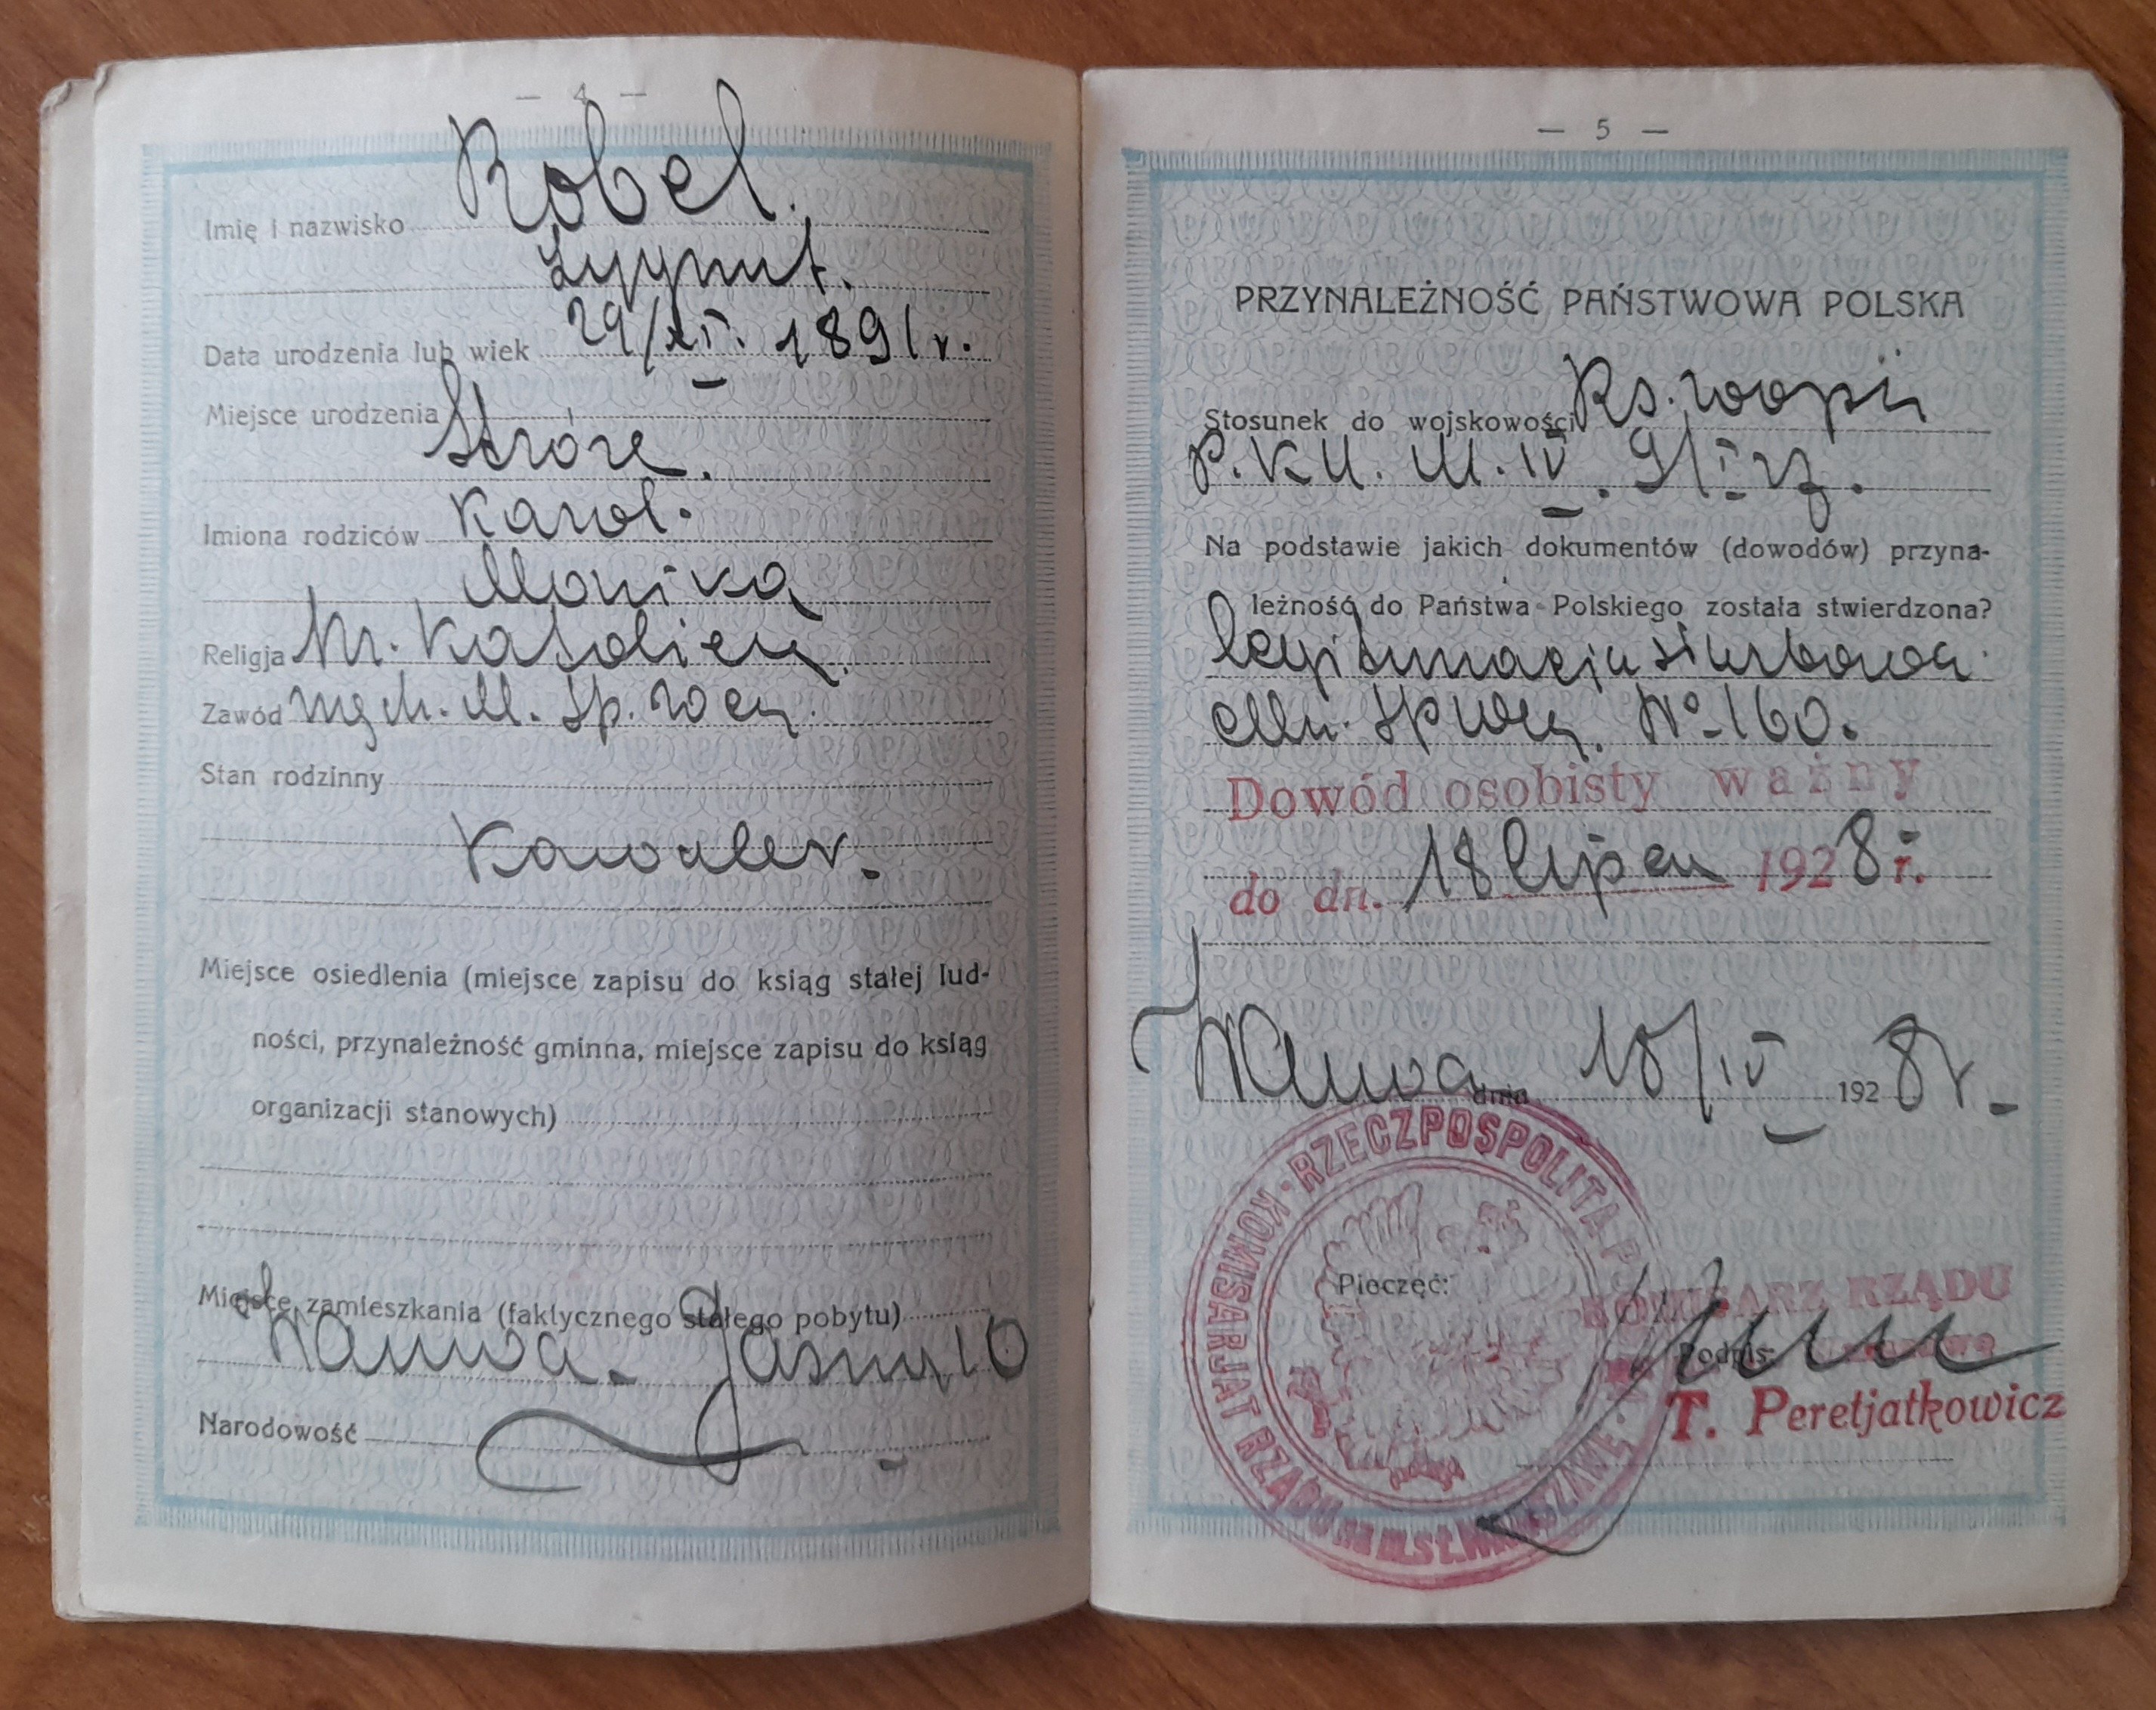 — 4 —
Imię i nazwisko Robel.
Zygmunt.
Data urodzenia lub wiek 29/XI. 1891 r.
Miejsce urodzenia
Stróże.
Imiona rodziców Karol.
Monika
Religja Kr. Katolicki.
Zawód M. Sp. Wew.
Stan rodzinny
Kawaler.
Miejsce osiedlenia (miejsce zapisu do ksiąg stałej lud-
ności, przynależność gminna, miejsce zapisu do ksiąg
organizacji stanowych)
Miejsce zamieszkania (faktycznego stałego pobytu)
Wawa. Jasna 10
Narodowość
— 5 —
PRZYNALEŻNOŚĆ PAŃSTWOWA POLSKA
Stosunek do wojskowości Ks.
P.K.U. M. IV.
Na podstawie jakich dokumentów (dowodów) przyna-
leżność do Państwa Polskiego została stwierdzona?
legitymacja służbowa
Min. Sp Wew. No 160.
Dowód osobisty ważny
do dn. 18 lipca 1928 r.
Wawa dnia 18/IV 1928 r.
RZECZPOSPOLITA
KOMISARJAT RZĄDU na m. st. WARSZAWĘ
Pieczęć:
KOMISARZ RZĄDU
Podpis:
T. Peretjatkowicz